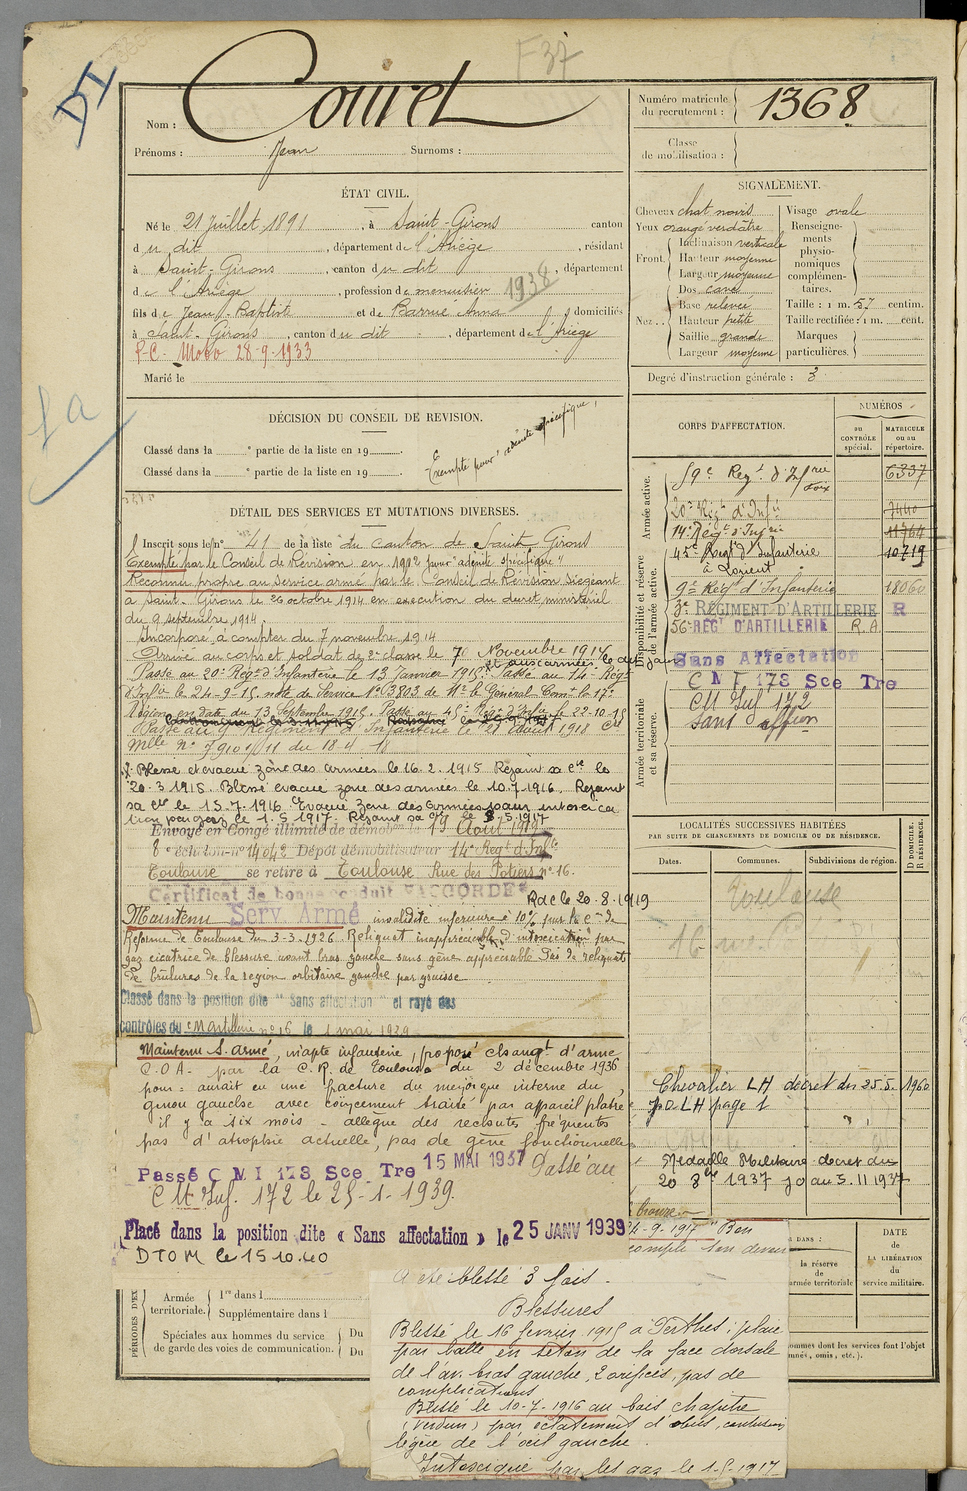 F37
DI
Nom : Couret
Prénoms : Jean Surnoms :
Numéro matricule du recrutement : 1368
Classe de mobilisation :
ÉTAT CIVIL.
Né le 21 Juillet 1891, à Saint-Girons canton
du dit, département de l'Ariège, résidant
à Saint-Girons, canton du dit, département
de l'Ariège, profession de menuisier 1938
fils de Jean-Baptiste et de Barrué Anna domiciliés
à Saint-Girons, canton du dit, département de l'Ariège
P.C. Mobo 28-9-1933
Marié le
SIGNALEMENT.
Cheveux chat noirs
Yeux orangé verdâtre
Front. Inclinaison verticale
Hauteur moyenne
Largeur moyenne
Nez.. Dos cave
Base relevée
Hauteur petite
Saillie grande
Largeur moyenne
Visage ovale
Renseignements physionomiques complémentaires.
Taille : 1 m. 57 centim.
Taille rectifiée : 1 m. cent.
Marques particulières.
Degré d'instruction générale : 3
1a
DÉCISION DU CONSEIL DE REVISION.
Classé dans la e partie de la liste en 19
Classé dans la e partie de la liste en 19
Exempté pour adénite spécifique,
CORPS D'AFFECTATION.
NUMÉROS
au CONTRÔLE spécial.
MATRICULE ou au répertoire.
Armée active.
59e Regt d'Infrie Foix 6337
20e Régt d'Infie 7440
14e Régt d'Infrie 11764
45e Regt d'Infanterie 10719
à Lorient
Disponibilité et réserve de l'armée active.
9e Régt d'Infanterie 18060
3e RÉGIMENT D'ARTILLERIE R
56e REGt D'ARTILLERIE R.A.
Sans Affectation
C M I 178 Sce Tre
Armée territoriale et sa réserve.
CM Inf 172
Sans affion
DÉTAIL DES SERVICES ET MUTATIONS DIVERSES.
Inscrit sous le n° 41 de la liste du canton de Saint-Girons
Exempté par le Conseil de Révision en 1912 pour "adénite spécifique"
Reconnu propre au service armé par le Conseil de Révision siégeant
à Saint-Girons le 26 octobre 1914 en exécution du décret ministériel
du 9 septembre 1914.
Incorporé à compter du 7 novembre 1914
Arrivé au corps et soldat de 2e classe le 7 Novembre 1914
Passé au 20e Régt d'Infanterie le 13 Janvier 1915. Passé au 14e Régt
d'Infie le 24-9-15 note de Service N° 13803 de Mr le Général Comt la 17e
Région en date du 13 Septembre 1915. Passé au 45e Regt d'Infie le 22-10-15
Passé au 9e Régiment d'Infanterie le 21 Août 1918
Mlle n° 7910 1/11 du 18-4-18
Blessé et évacué zône des armées le 16.2.1915 Rejoint sa cie le
20-3 1915. Blessé évacué zone des armées le 10.7.1916. Rejoint
sa cie le 15.7.1916. Evacué zone des armées pour intoxica
tion par gaz le 1.5.1917. Rejoint sa cie le 8.5.1917
Envoyé en Congé illimité de démobon le 19 Août 1919
8e échelon n° 14042 Dépôt démobilisateur 14e Regt d'Infie
Toulouse se retire à Toulouse Rue des Potiers n° 16.
Certificat de bonne conduite "ACCORDÉ"
Rac le 20-8-1919
Maintenu Serv. Armé invalidité inférieure à 10% par la con de
Réforme de Toulouse du 3-3-1926. Reliquat inappréciable d'intoxication par
gaz cicatrice de blessure avant bras gauche sans gêne appréciable. Pas de reliquats
de brûlures de la région orbitaire gauche par grenade
Classé dans la position dite "Sans affectation" et rayé des
contrôles du d'Artillerie n° 56 le 1 mai 1929
Maintenu S. armé, inapte infanterie, proposé changt d'arme
C.O.A. par la C.R. de Toulouse du 2 décembre 1936
pour : aurait eu une fracture du ménisque interne du
genou gauche avec coincement traité par appareil plâtré
il y a six mois - allègue des rechutes fréquentes
pas d'atrophie actuelle, pas de gêne fonctionnelle
Passé C M I 178 Sce Tre 15 MAI 1937 Passé au
CM Inf. 172 le 25-1-1939.
Placé dans la position dite « Sans affectation » le 25 JANV 1939
DTOM le 15 10.40
LOCALITÉS SUCCESSIVES HABITÉES
PAR SUITE DE CHANGEMENTS DE DOMICILE OU DE RÉSIDENCE.
Dates.
Communes.
Subdivisions de région.
D DOMICILE. R RÉSIDENCE.
Toulouse
16
Chevalier LH décret du 25.5.1960
JO LH page 1
Médaille Militaire décret du
20 8bre 1937 JO au 5.11 1937
bronze
"Bon
DATE DE LA LIBÉRATION du service militaire.
la réserve de l'armée territoriale
PÉRIODES D'EX
Armée territoriale. 1re dans l
Supplémentaire dans l
Spéciales aux hommes du service de garde des voies de communication. Du
Du
hommes dont les services font l'objet
A été blessé 3 fois -
Blessures
Blessé le 16 février 1915 à Perthes : plaie
par balle en séton de la face dorsale
de l'av. bras gauche, 2 orifices, pas de
complications
Blessé le 10-7-1916 au bois Chapitre
(Verdun) par éclatement d'obus, contusion
légère de l'oeil gauche.
Intoxiqué par les gaz le 1-5-1917